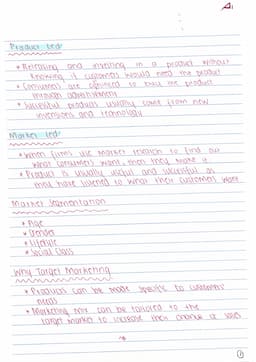 Product Led:
* Releasing and investing in a product without
knowing if customers would need the product
* Consumers are convinced to buy the product
through advertisement
* Successful products usually come from new
inventions and technology
Market Led:
* When firms use market research to find out
what consumers want, then they make it
* Product is usually useful and successful as
they have listened to what their customers want
Market Segmentation
* Age
* Gender
* Lifestyle
* Social Class
Why Target Marketing
* Products can be made specific to customers
needs
* Marketing mix can be tailored to the
target market to increase their chance of sales